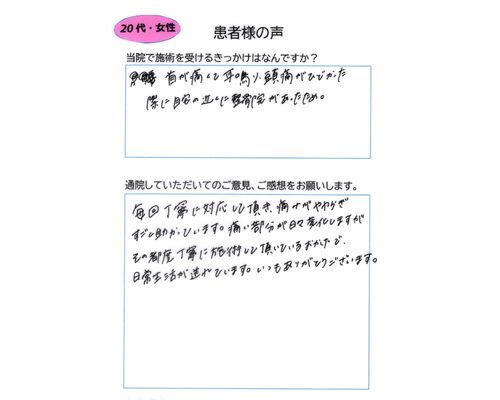 20代・女性
患者様の声
当院で施術を受けるきっかけはなんですか？
首が痛くて耳鳴り、頭痛がひどかった
際に自宅の近くに整骨院があったため。
通院していただいてのご意見、ご感想をお願いします。
毎回丁寧に対応して頂き、痛みがやわらぎ
すごく助かっています。痛い部分が日々変化しますが
その都度丁寧に施術して頂いているおかげで、
日常生活が送れています。いつもありがとうございます。